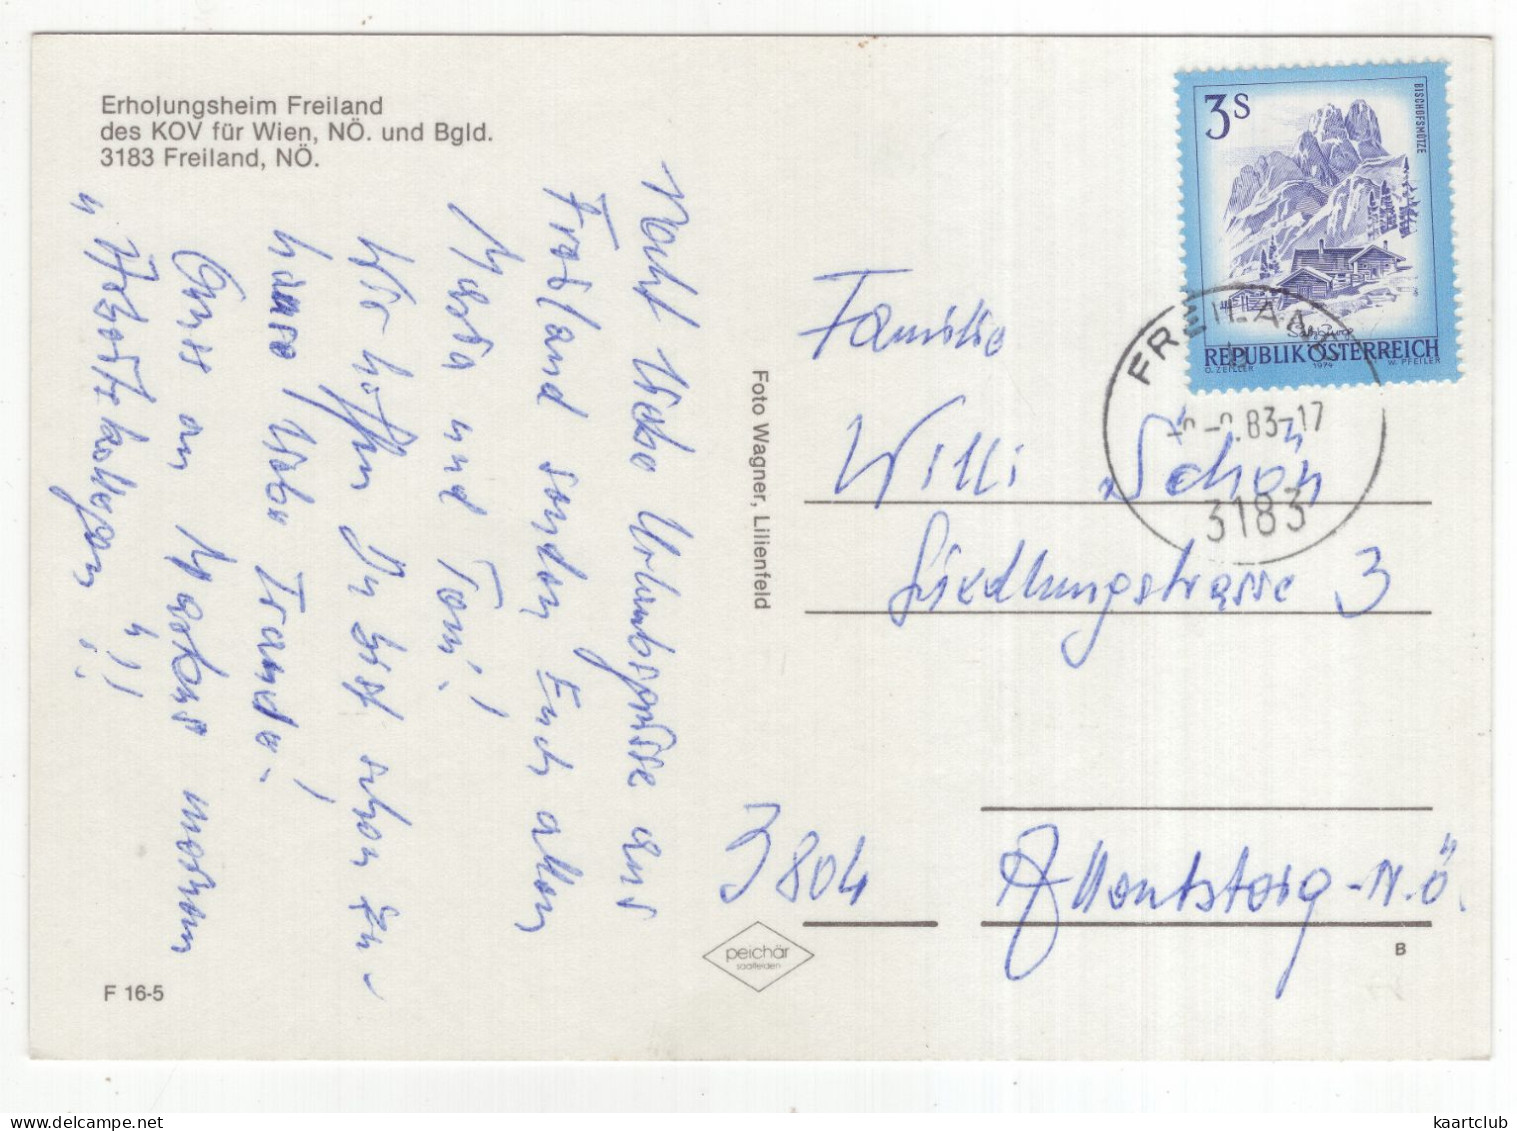 Erholungsheim Freiland
des KOV für Wien, NÖ. und Bgld.
3183 Freiland, NÖ.
Recht liebe Urlaubsgrüsse aus
Freiland senden Euch allen
Maria und Toni!
Wir hoffen Du bist schon zu-
hause liebe Traude!
Gruss an Markus meinem
"
Foto Wagner, Lilienfeld
3S
BISCHOFSMÜTZE
Salzburg
REPUBLIK ÖSTERREICH
O. ZEILLER 1974 W. PFEILER
FREILAND
83-17
3183
Familie
Willi Schön
Siedlungstrasse 3
3804 Allentsteig - N.Ö.
peichär
saalfelden
F 16-5
B
kaartclub